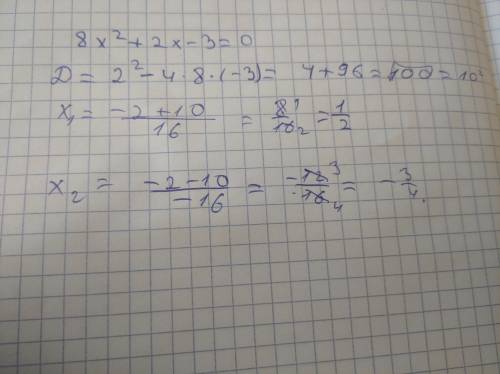 8x² + 2x - 3 = 0
D = 2² - 4 · 8 · (-3) = 4 + 96 = √100 = 10²
x₁ = (-2 + 10)/16 = 8¹/16₂ = 1/2
x₂ = (-2 - 10)/(-16) = -12³/16₄ = -3/4.